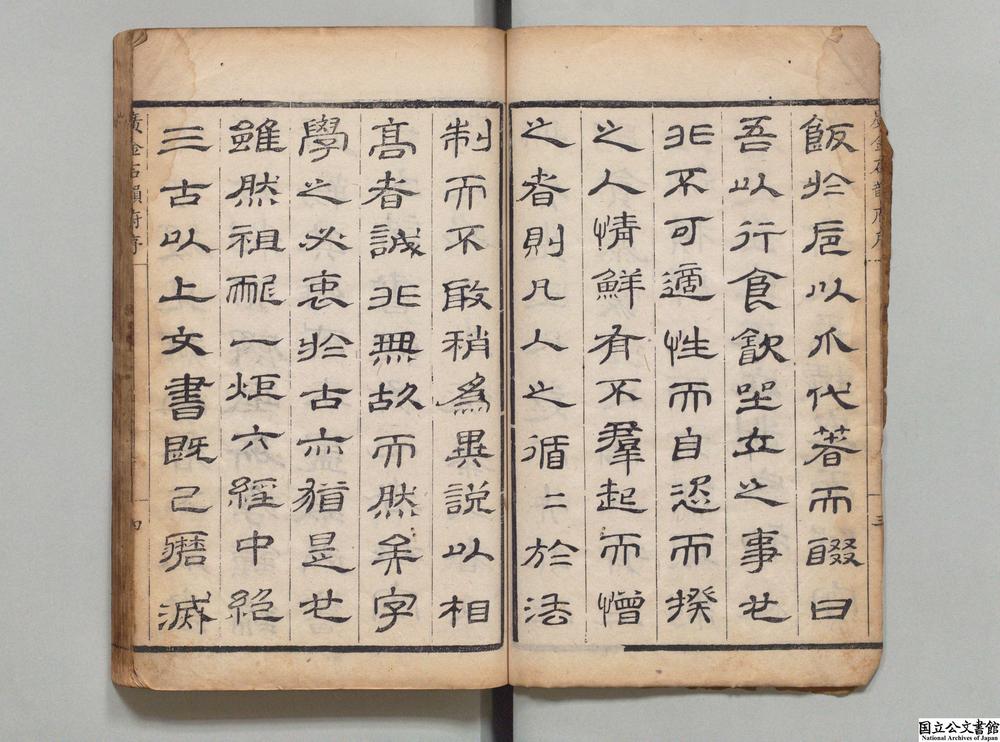 廣金石韻府序
三
飯於巵以爪代箸而啜曰
吾以行食飲坐立之事也
非不可適性而自恣而揆
之人情鮮有不羣起而憎
之者則凡人之循二於法
制而不敢稍為異說以相
高者誠非無故而然矣字
學之必衷於古亦猶是也
雖然祖龍一炬六經中絕
三古以上文書既已磨滅
廣金石韻府序
四
国立公文書館
National Archives of Japan